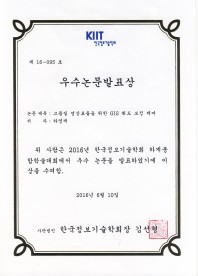 KIIT
한국정보기술학회
제 16-095 호
우수논문발표상
논문제목 : 고품질 영상표출을 위한 GIS 궤도 보정 제어
위 사람은 2016년 한국정보기술학회 하계종
합학술대회에서 우수 논문을 발표하였기에 이
상을 수여함.
2016년 6월 10일
사단법인 한국정보기술학회장 김선형